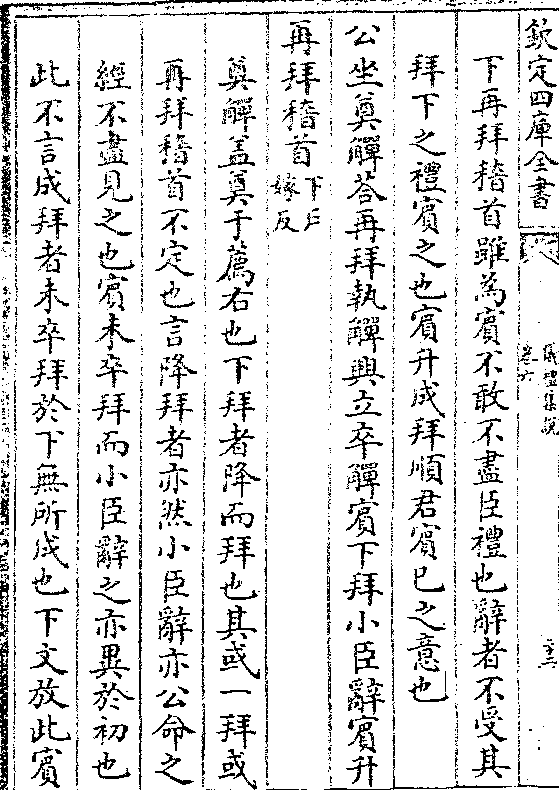 欽定四庫全書
儀禮集說
卷六
下再拜稽首雖為賓不敢不盡臣禮也辭者不受其
拜下之禮賓之也賓升成拜順君賓已之意也
公坐奠觶荅再拜執觶興立卒觶賓下拜小臣辭賓升
再拜稽首下戶嫁反
奠觶盖奠于薦右也下拜者降而拜也其或一拜或
再拜稽首不定也言降拜者亦然小臣辭亦公命之
經不盡見之也賓未卒拜而小臣辭之亦異於初也
此不言成拜者未卒拜於下無所成也下文放此賓